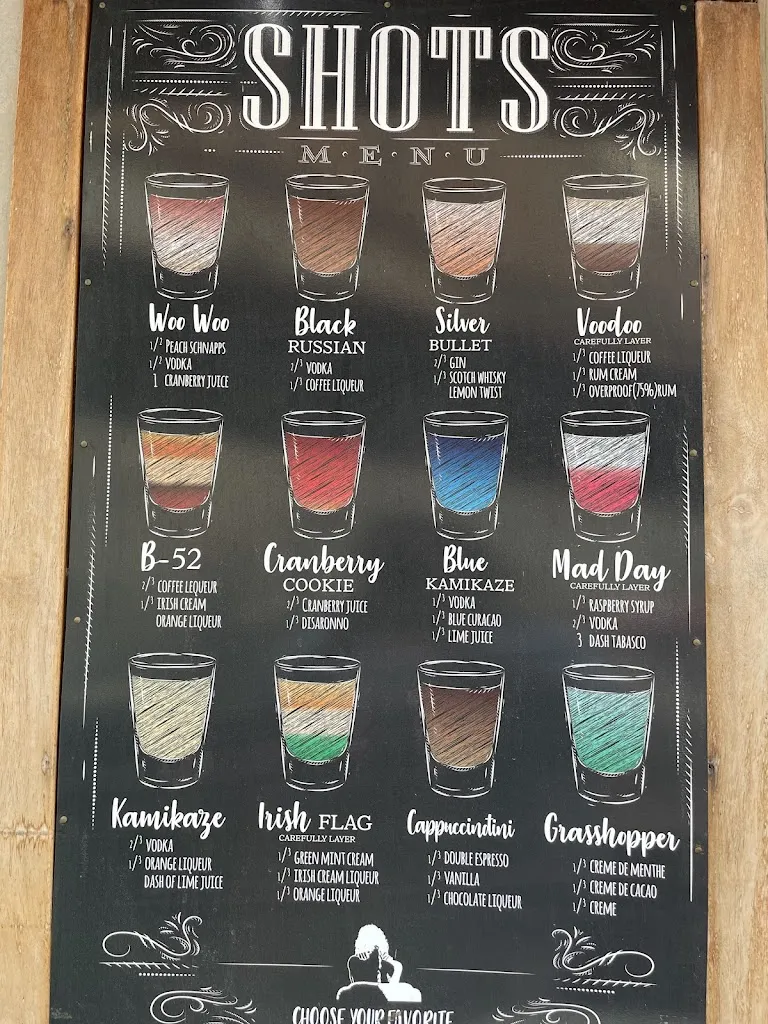 SHOTS
M·E·N·U
Woo Woo
1/2 PEACH SCHNAPPS
1/2 VODKA
1 CRANBERRY JUICE
Black
RUSSIAN
2/3 VODKA
1/3 COFFEE LIQUEUR
Silver
BULLET
2/3 GIN
1/3 SCOTCH WHISKY
LEMON TWIST
Voodoo
CAREFULLY LAYER
1/3 COFFEE LIQUEUR
1/3 RUM CREAM
1/3 OVERPROOF(75%)RUM
B-52
2/3 COFFEE LEQUEUR
1/3 IRISH CREAM
ORANGE LIQUEUR
Cranberry
COOKIE
2/3 CRANBERRY JUICE
1/3 DISARONNO
Blue
KAMIKAZE
1/3 VODKA
1/3 BLUE CURACAO
1/3 LIME JUICE
Mad Day
CAREFULLY LAYER
1/3 RASPBERRY SYRUP
2/3 VODKA
3 DASH TABASCO
Kamikaze
2/3 VODKA
1/3 ORANGE LIQUEUR
DASH OF LIME JUICE
Irish FLAG
CAREFULLY LAYER
1/3 GREEN MINT CREAM
1/3 IRISH CREAM LIQUEUR
1/3 ORANGE LIQUEUR
Cappuccindini
1/3 DOUBLE ESPRESSO
1/3 VANILLA
1/3 CHOCOLATE LIQUEUR
Grasshopper
1/3 CREME DE MENTHE
1/3 CREME DE CACAO
1/3 CREME
CHOOSE YOUR FAVORITE